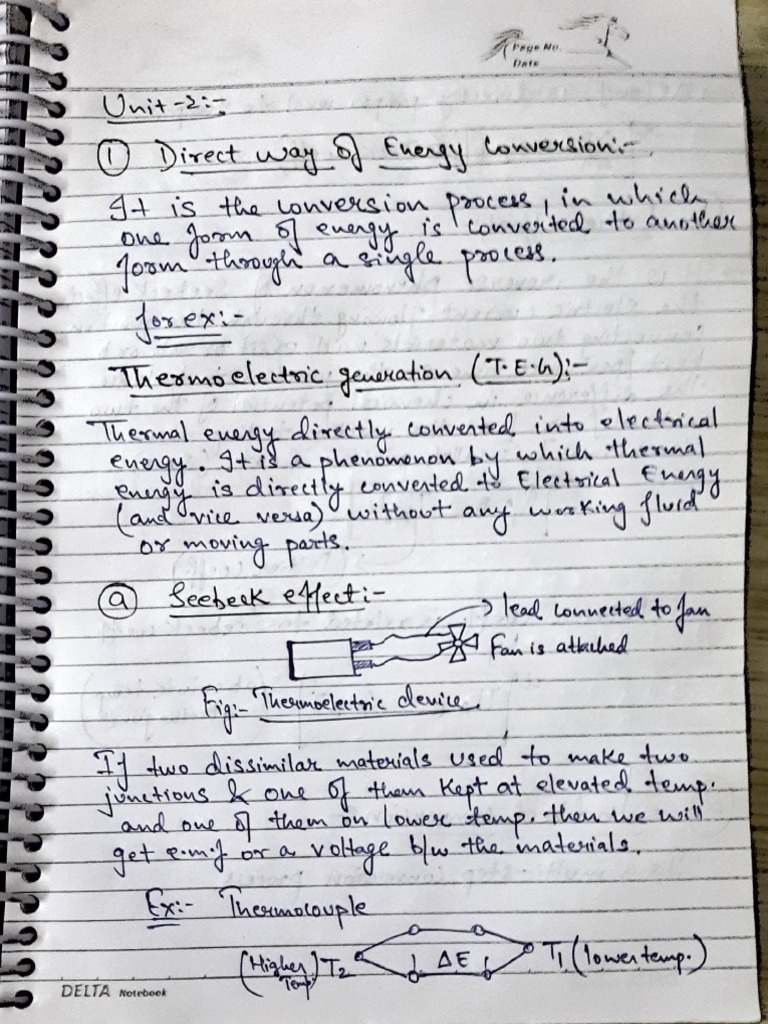 Page No.
Date
Unit-2:-
① Direct way of Energy Conversion:-
It is the conversion process, in which
one form of energy is converted to another
form through a single process.
for ex:-
Thermoelectric generation (T.E.G):-
Thermal energy directly converted into electrical
energy. It is a phenomenon by which thermal
energy is directly converted to Electrical Energy
(and vice versa) without any working fluid
or moving parts.
ⓐ Seebeck effect:-
lead connected to fan
Fan is attached
Fig:- Thermoelectric device.
If two dissimilar materials used to make two
junctions & one of them kept at elevated temp.
and one of them on lower temp. then we will
get e.m.f or a voltage b/w the materials.
Ex:- Thermocouple
(Higher Temp) T2 ΔE T1 (lower temp.)
DELTA Notebook